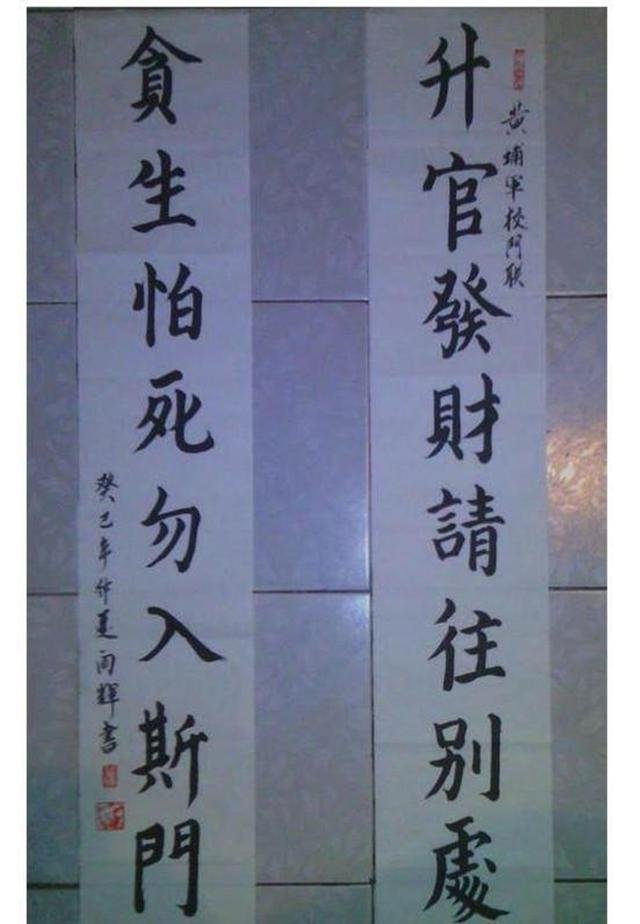 升官發財請往別處
黃埔軍校門联
貪生怕死勿入斯門
癸巳年仲夏雨輝書